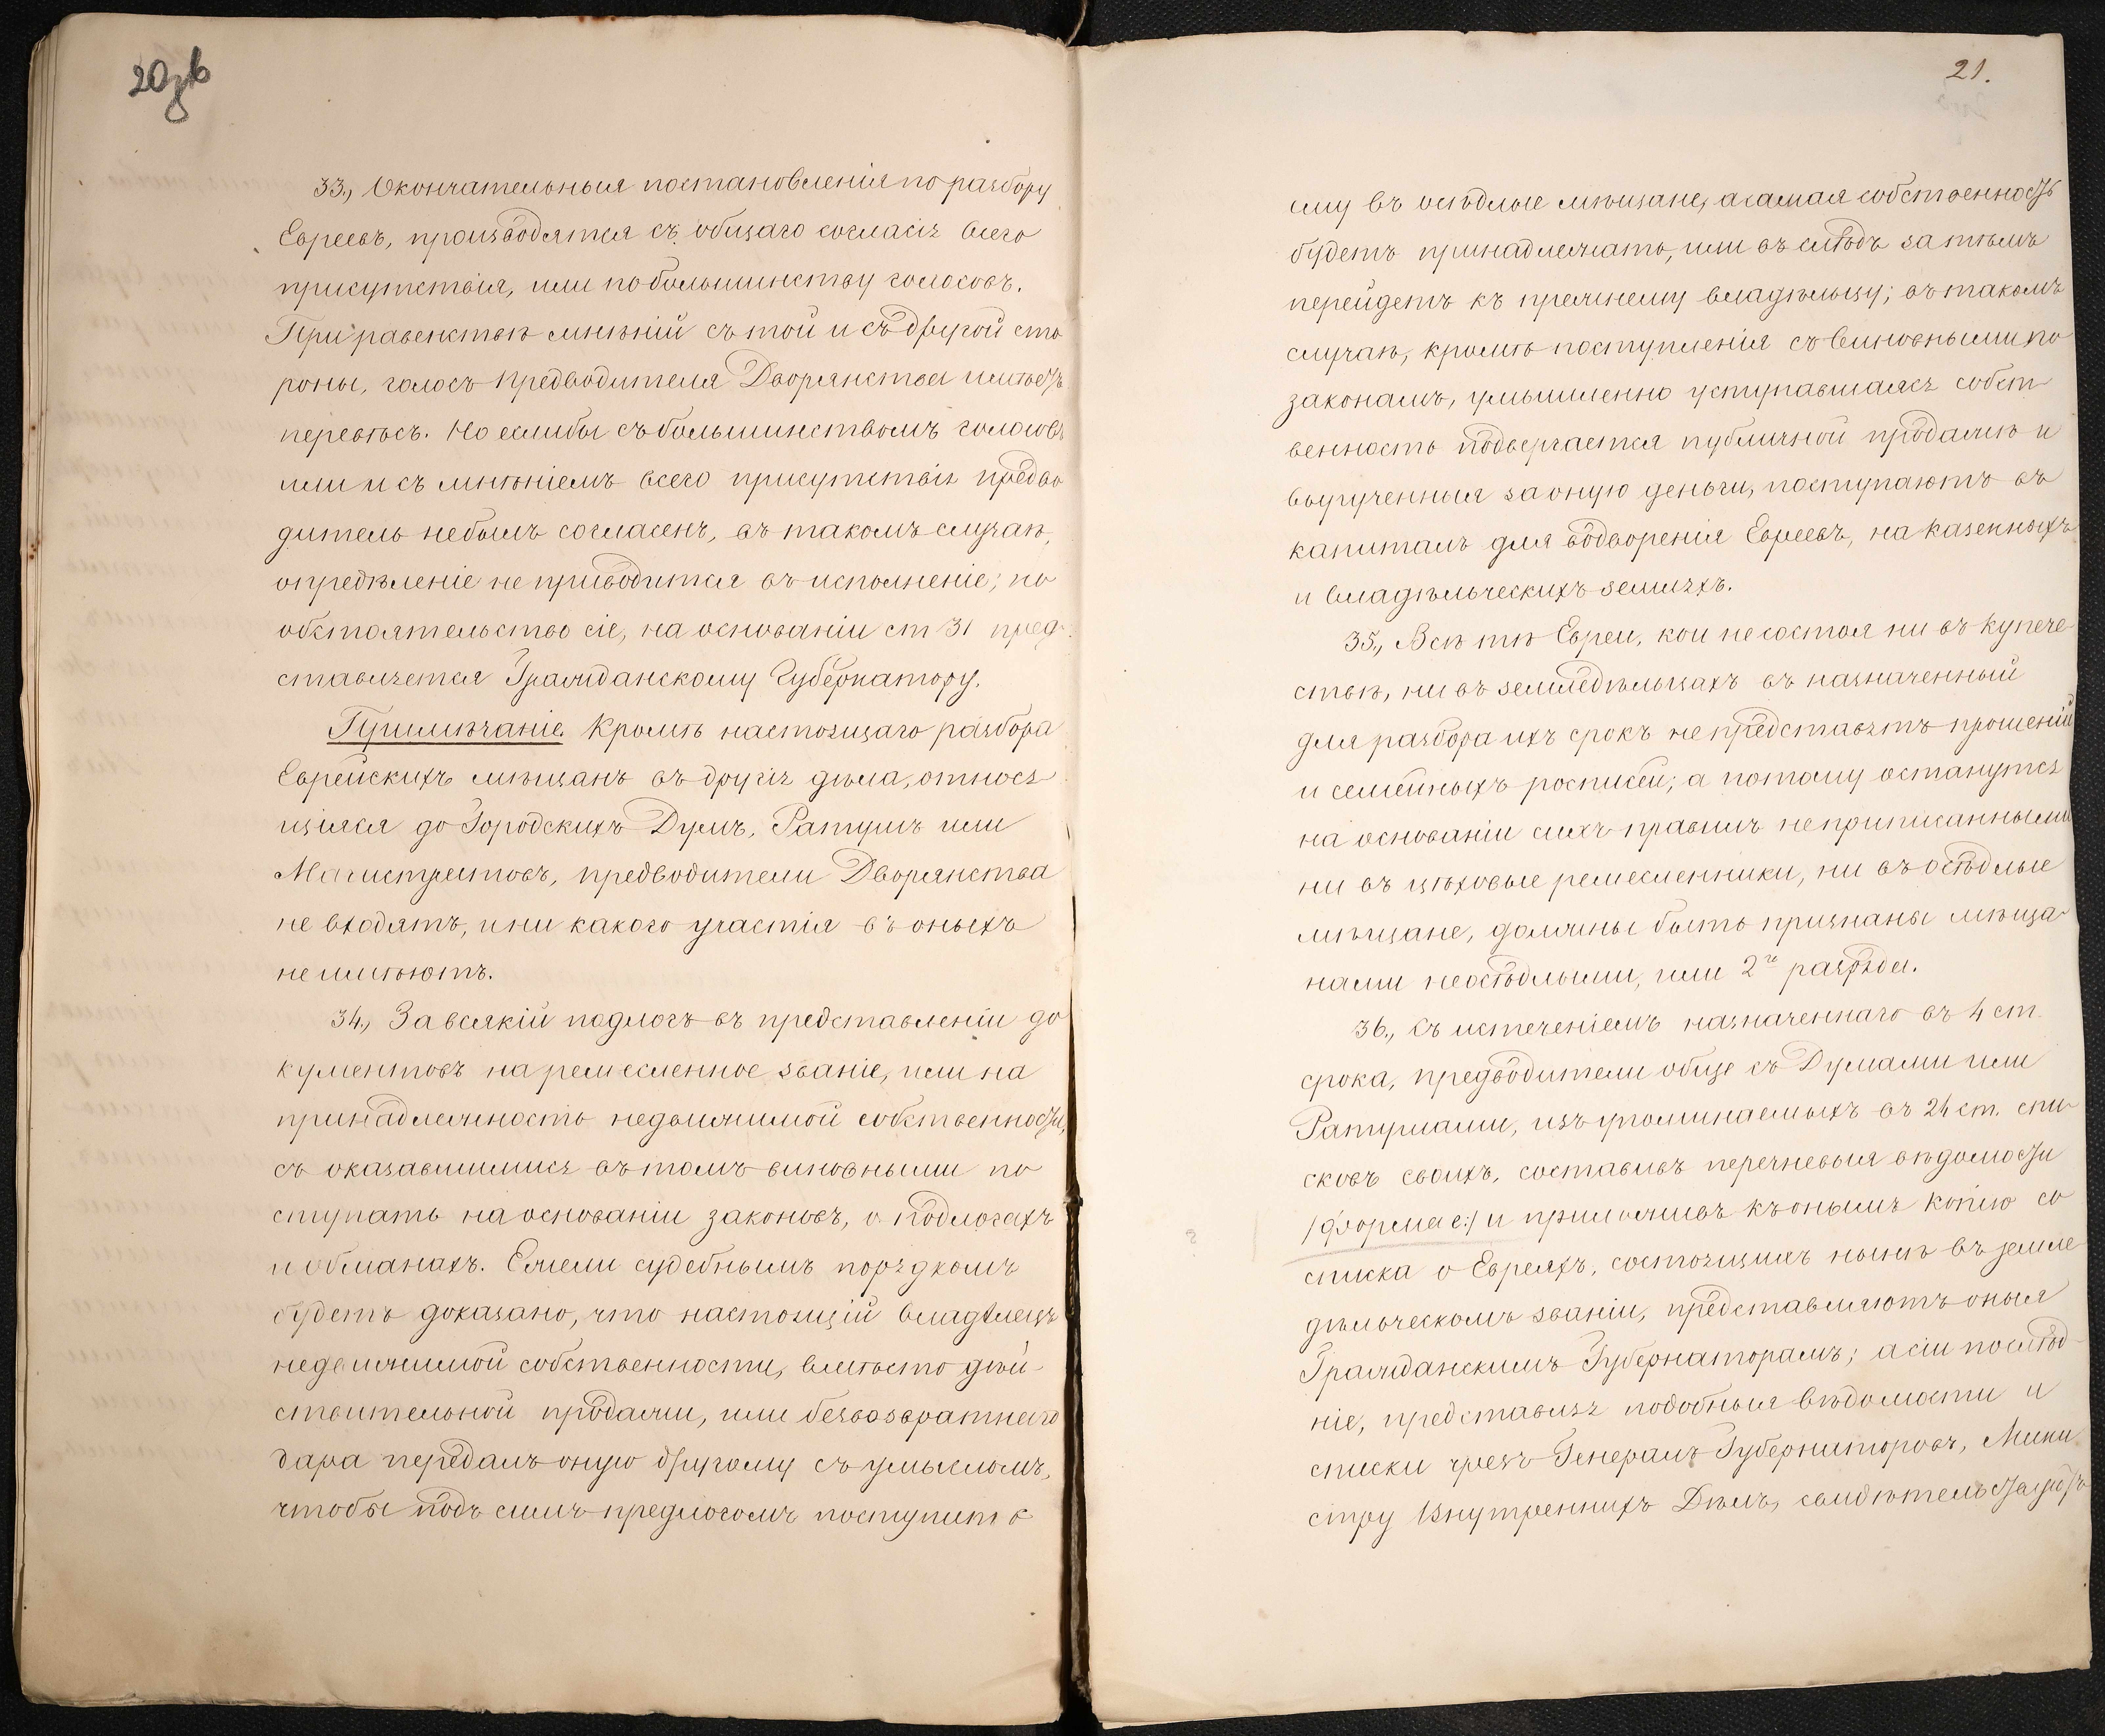 20зв
33., Окончательныя постановленія по разбору
Евреевъ, производятся съ общаго согласія всего
присутствія, или по большинству голосовъ.
При равенствѣ мнѣній съ той и съ другой сто
роны, голосъ Предводителя Дворянства имѣетъ
перевѣсъ. Но еслибы съ большинствомъ голосовъ
или и съ мнѣніемъ всего присутствія предво
дитель не былъ согласенъ, въ такомъ случаѣ,
опредѣленіе не приводится въ исполненіе; но
обстоятельство сіе, на основаніи ст 31 пред-
ставляется Гражданскому Губернатору.
Примѣчаніе. Кромѣ настоящаго разбора
Еврейскихъ мѣщанъ въ другія дѣла, относя
щіяся до Городскихъ Думъ, Ратушъ или
Магистратовъ, предводители Дворянства
не входятъ, и ни какого участія въ оныхъ
не имѣютъ.
34., За всякій подлогъ въ представленіи до
кументовъ на ремесленное званіе, или на
принадлежность недвижимой собственности,
съ оказавшимися въ томъ виновными по
ступать на основаніи законовъ, о подлогахъ
и обманахъ. Ежели судебнымъ порядкомъ
будетъ доказано, что настоящій владѣлецъ
недвижимой собственности, вмѣсто дѣй-
ствительной продажи, или безвозвратнаго
дара передалъ оную другому съ умысломъ,
чтобы подъ симъ предлогомъ поступить
21.
ему въ осѣдлые мѣщане, а самая собственность
будетъ принадлежать, или въ слѣдъ за тѣмъ
перейдетъ къ прежнему владѣльцу; въ такомъ
случаѣ, кромѣ поступленія съ виновными по
законамъ, умышленно уступавшаяся собст
венность подвергается публичной продажѣ и
вырученныя за оную деньги, поступаютъ въ
капиталъ для водворенія Евреевъ, на казенныхъ
и владѣльческихъ земляхъ.
35., Всѣ тѣ Евреи, кои не состоя ни въ купече
ствѣ, ни въ земледѣльцахъ въ назначенный
для разбора ихъ срокъ не представятъ прошеній
и семейныхъ росписей; а потому останутся
на основаніи сихъ правилъ неприписанными
ни въ цѣховые ремесленники, ни въ осѣдлые
мѣщане, должны быть признаны мѣща-
нами неосѣдлыми, или 2го разряда.
36., Съ истеченіемъ назначеннаго въ 4 ст.
срока, предводители обще съ Думами или
Ратушами, изъ упоминаемыхъ въ 24 ст. спи-
сковъ своихъ, составивъ перечневыя вѣдомости
/форма е:/ и приложивъ къ онымъ копію со
списка о Евреяхъ, состоящихъ нынѣ въ земле
дѣльческомъ званіи, представляютъ оныя
Гражданскимъ Губернаторамъ; а сіи послѣд-
ніе, представляя подобныя вѣдомости и
списки чрезъ Генералъ Губернаторовъ, Мини
стру Внутреннихъ Дѣлъ, свидѣтельствуютъ